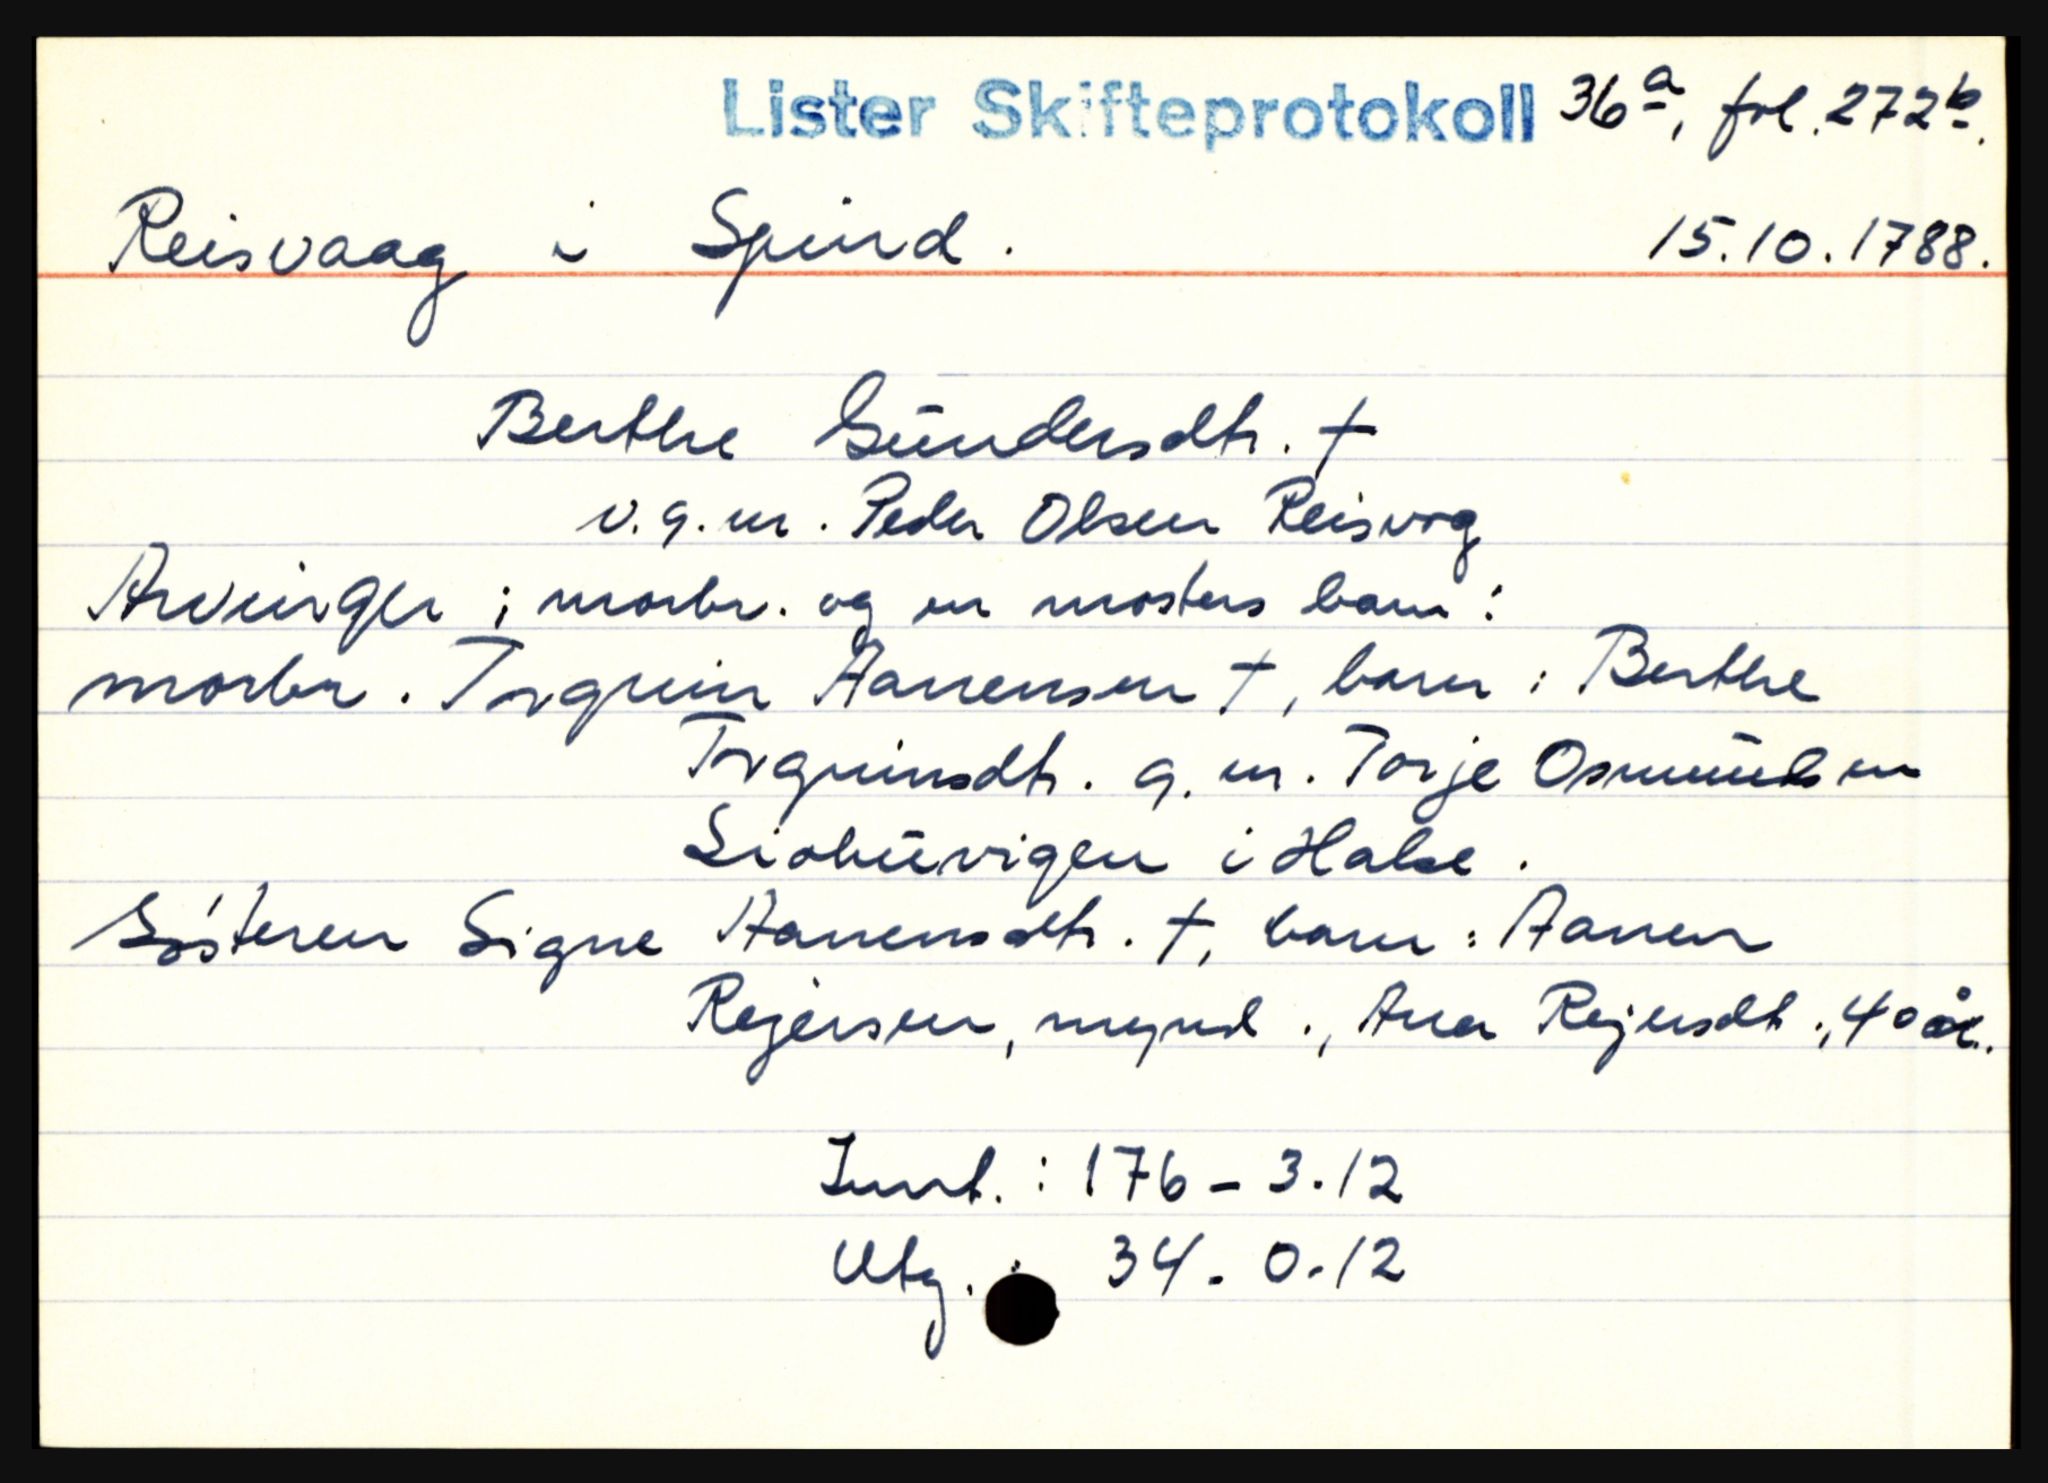 Lister Skifteprotokoll 36a, fol. 272b.
Reisvaag i Spind. 15.10.1788.
Berthe Gündersdtr. †
v.g.m. Peder Olsen Reisvog
Arvinger: morbr. og en mosters barn:
morbr. Torgrim Aanensen †, barn: Berthe
Torgrimsdtr. g.m. Torje Osmundsen
i Halse.
Søsteren Signe Aanensdtr. †, barn: Aanen
Rejersen, mynd., Ana Rejersdt., 40 år.
Innt.: 176-3.12
Utg.: 34-0-12